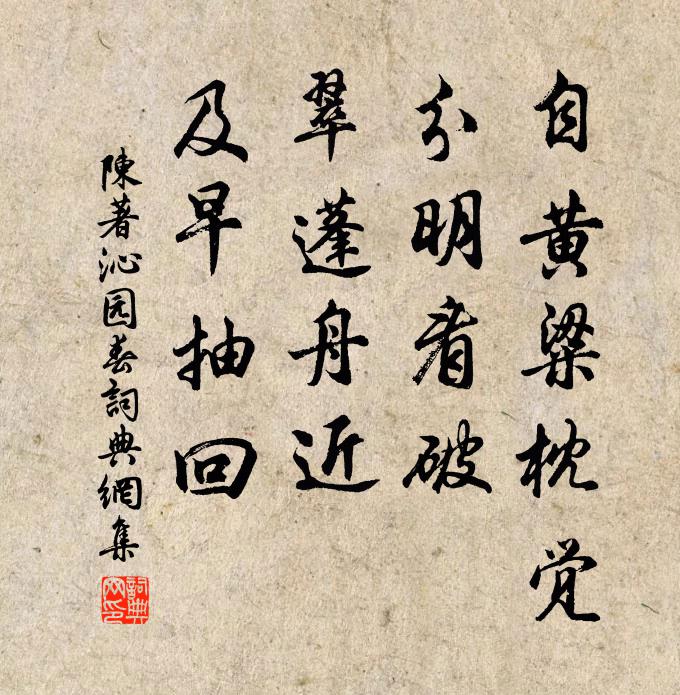 自黄梁枕觉
分明看破
翠蓬舟近
及早抽回
陳著沁园春詞典網集
詞典网印